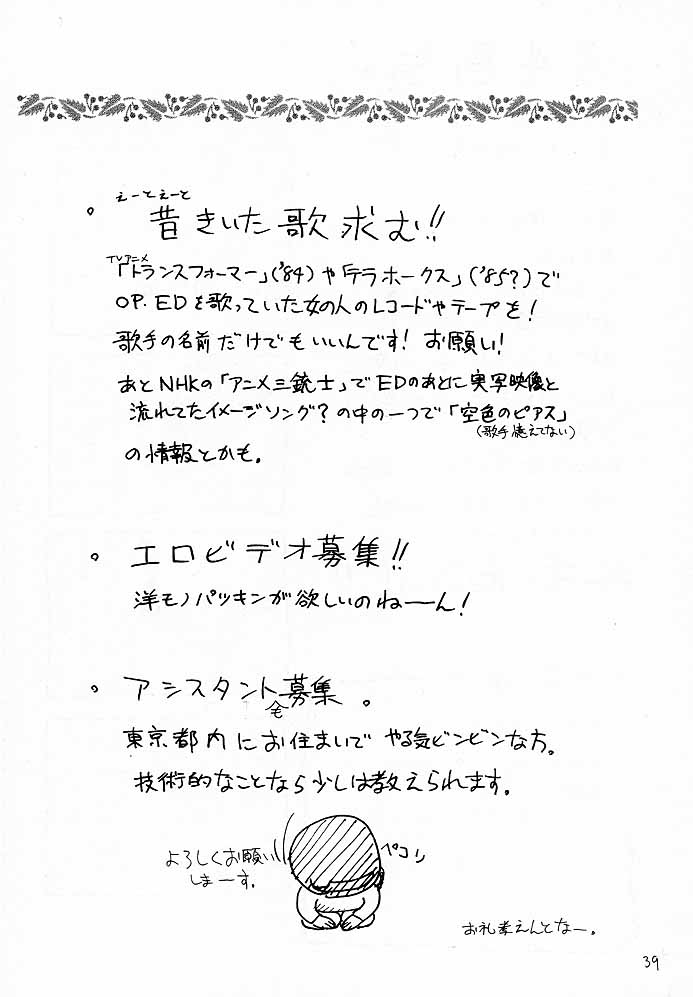 えーとえーと
。昔きいた歌求む!!
TVアニメ
「トランスフォーマー」('84)や「テラホークス」('85?)で
OP. EDを歌っていた女の人のレコードやテープを!
歌手の名前だけでもいいんです! お願い!
あとNHKの「アニメ三銃士」でEDのあとに実写映像と
流れてたイメージソング?の中の一つで「空色のピアス」
(歌手憶えてない)
の情報とかも。
。エロビデオ募集!!
洋モノパツキンが欲しいのねーん!
。アシスタント募集。
東京都内にお住まいで やる気ビンビンな方。
技術的なことなら少しは教えられます。
よろしくお願い
しまーす。
ペコリ
お礼考えんとなー。
39